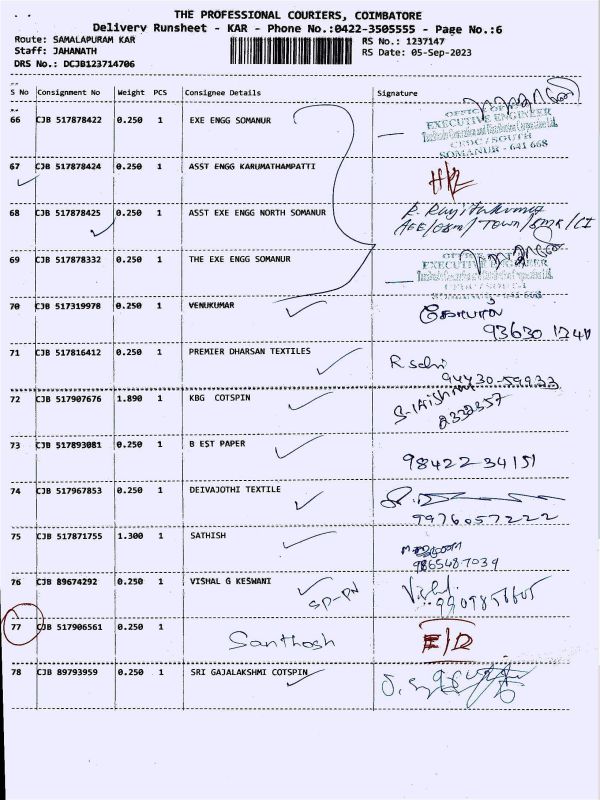 THE PROFESSIONAL COURIERS, COIMBATORE
Delivery Runsheet - KAR - Phone No.:0422-3505555 - Page No.:6
Route: SAMALAPURAM KAR
Staff: JAHANATH
DRS No.: DCJB123714706
RS No.: 1237147
RS Date: 05-Sep-2023
S No Consignment No Weight PCS Consignee Details Signature
66 CJB 517878422 0.250 1 EXE ENGG SOMANUR
OFFICE OF
EXECUTIVE ENGINEER
CEDC/SOUTH
SOMANUR - 641 668
67 CJB 517878424 0.250 1 ASST ENGG KARUMATHAMPATTI
68 CJB 517878425 0.250 1 ASST EXE ENGG NORTH SOMANUR
AEE/O&M/TOWN/SMR/CI
69 CJB 517878332 0.250 1 THE EXE ENGG SOMANUR
EXECUTIVE ENGINEER
70 CJB 517319978 0.250 1 VENUKUMAR
93630 1740
71 CJB 517816412 0.250 1 PREMIER DHARSAN TEXTILES
94430-59933
72 CJB 517907676 1.890 1 KBG COTSPIN
2332357
73 CJB 517893081 0.250 1 B EST PAPER
98422 34151
74 CJB 517967853 0.250 1 DEIVAJOTHI TEXTILE
9976057222
75 CJB 517871755 1.300 1 SATHISH
9865487039
76 CJB 89674292 0.250 1 VISHAL G KESWANI
SP-PN
77 CJB 517906561 0.250 1
Santhosh E/D
78 CJB 89793959 0.250 1 SRI GAJALAKSHMI COTSPIN